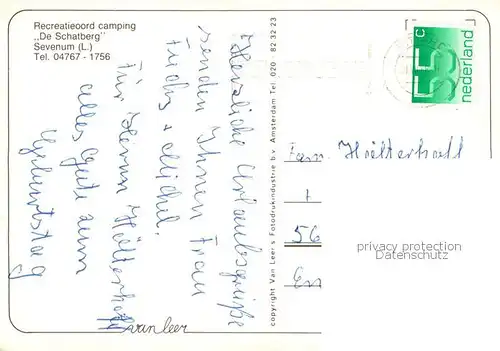 Recreatieoord camping
,,De Schatberg''
Sevenum (L.)
Tel. 04767 - 1756
Herzliche Urlaubsgrüße
senden Ihnen Frau
Fuchs + Michel.
Für Herrn Hölterhoff
alles Gute zum
Geburtstag
van leer
copyright Van Leer's Fotodrukindustrie b.v. Amsterdam Tel. 020 - 82 32 23
55 c
nederland
Fam. Hölterhoff
56
privacy protection
Datenschutz